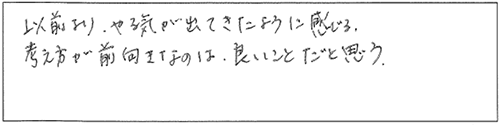 以前より、やる気が出てきたように感じる。
考え方が前向きなのは、良いことだと思う。